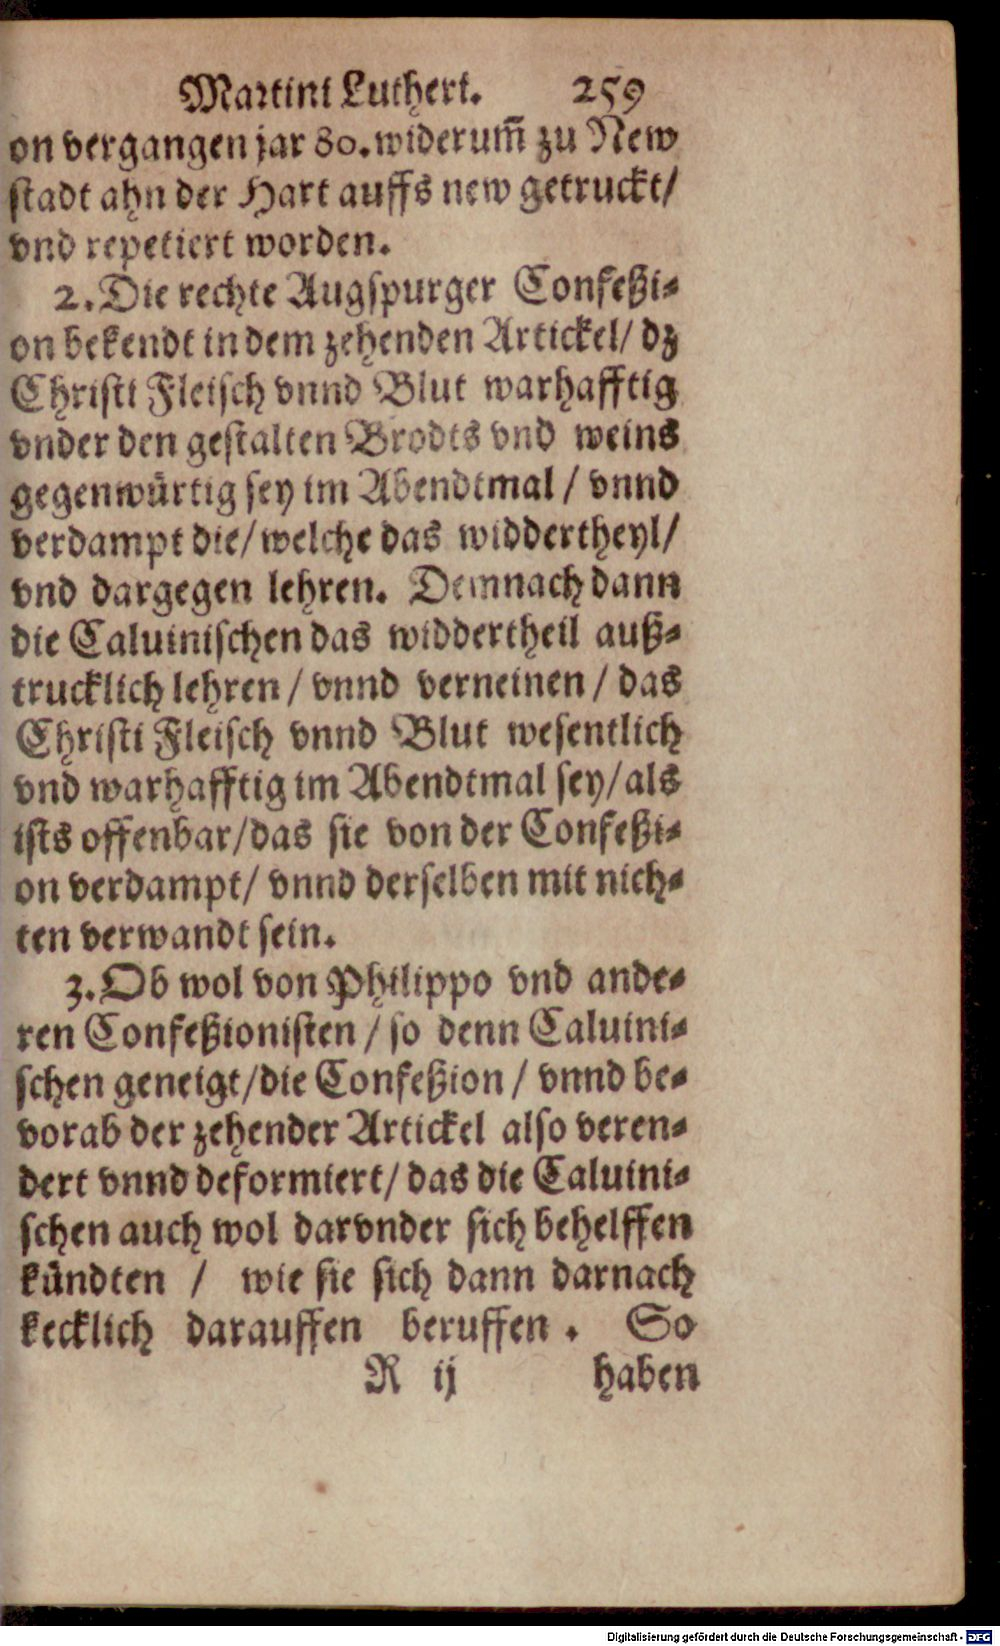 Martini Lutheri. 259
on vergangen jar 80. widerum̃ zu New
stadt ahn der Hart auffs new getruckt/
vnd repetiert worden.
2. Die rechte Augspurger Confeßi-
on bekendt in dem zehenden Artickel/ dz
Christi Fleisch vnnd Blut warhafftig
vnder den gestalten Brodts vnd weins
gegenwürtig sey im Abendtmal / vnnd
verdampt die/ welche das widdertheyl/
vnd dargegen lehren. Demnach dann
die Caluinischen das widdertheil auß-
trucklich lehren / vnnd verneinen / das
Christi Fleisch vnnd Blut wesentlich
vnd warhafftig im Abendtmal sey/ als
ists offenbar/ das sie von der Confeßi-
on verdampt/ vnnd derselben mit nich-
ten verwandt sein.
3. Ob wol von Philippo vnd ande-
ren Confeßionisten / so denn Caluini-
schen geneigt/ die Confeßion / vnnd be-
vorab der zehender Artickel also veren-
dert vnnd deformiert/ das die Caluini-
schen auch wol darvnder sich behelffen
kündten / wie sie sich dann darnach
kecklich darauffen beruffen. So
R ij haben
Digitalisierung gefördert durch die Deutsche Forschungsgemeinschaft - DFG